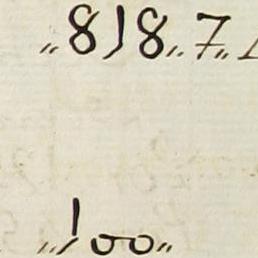 "818"7"
"100"